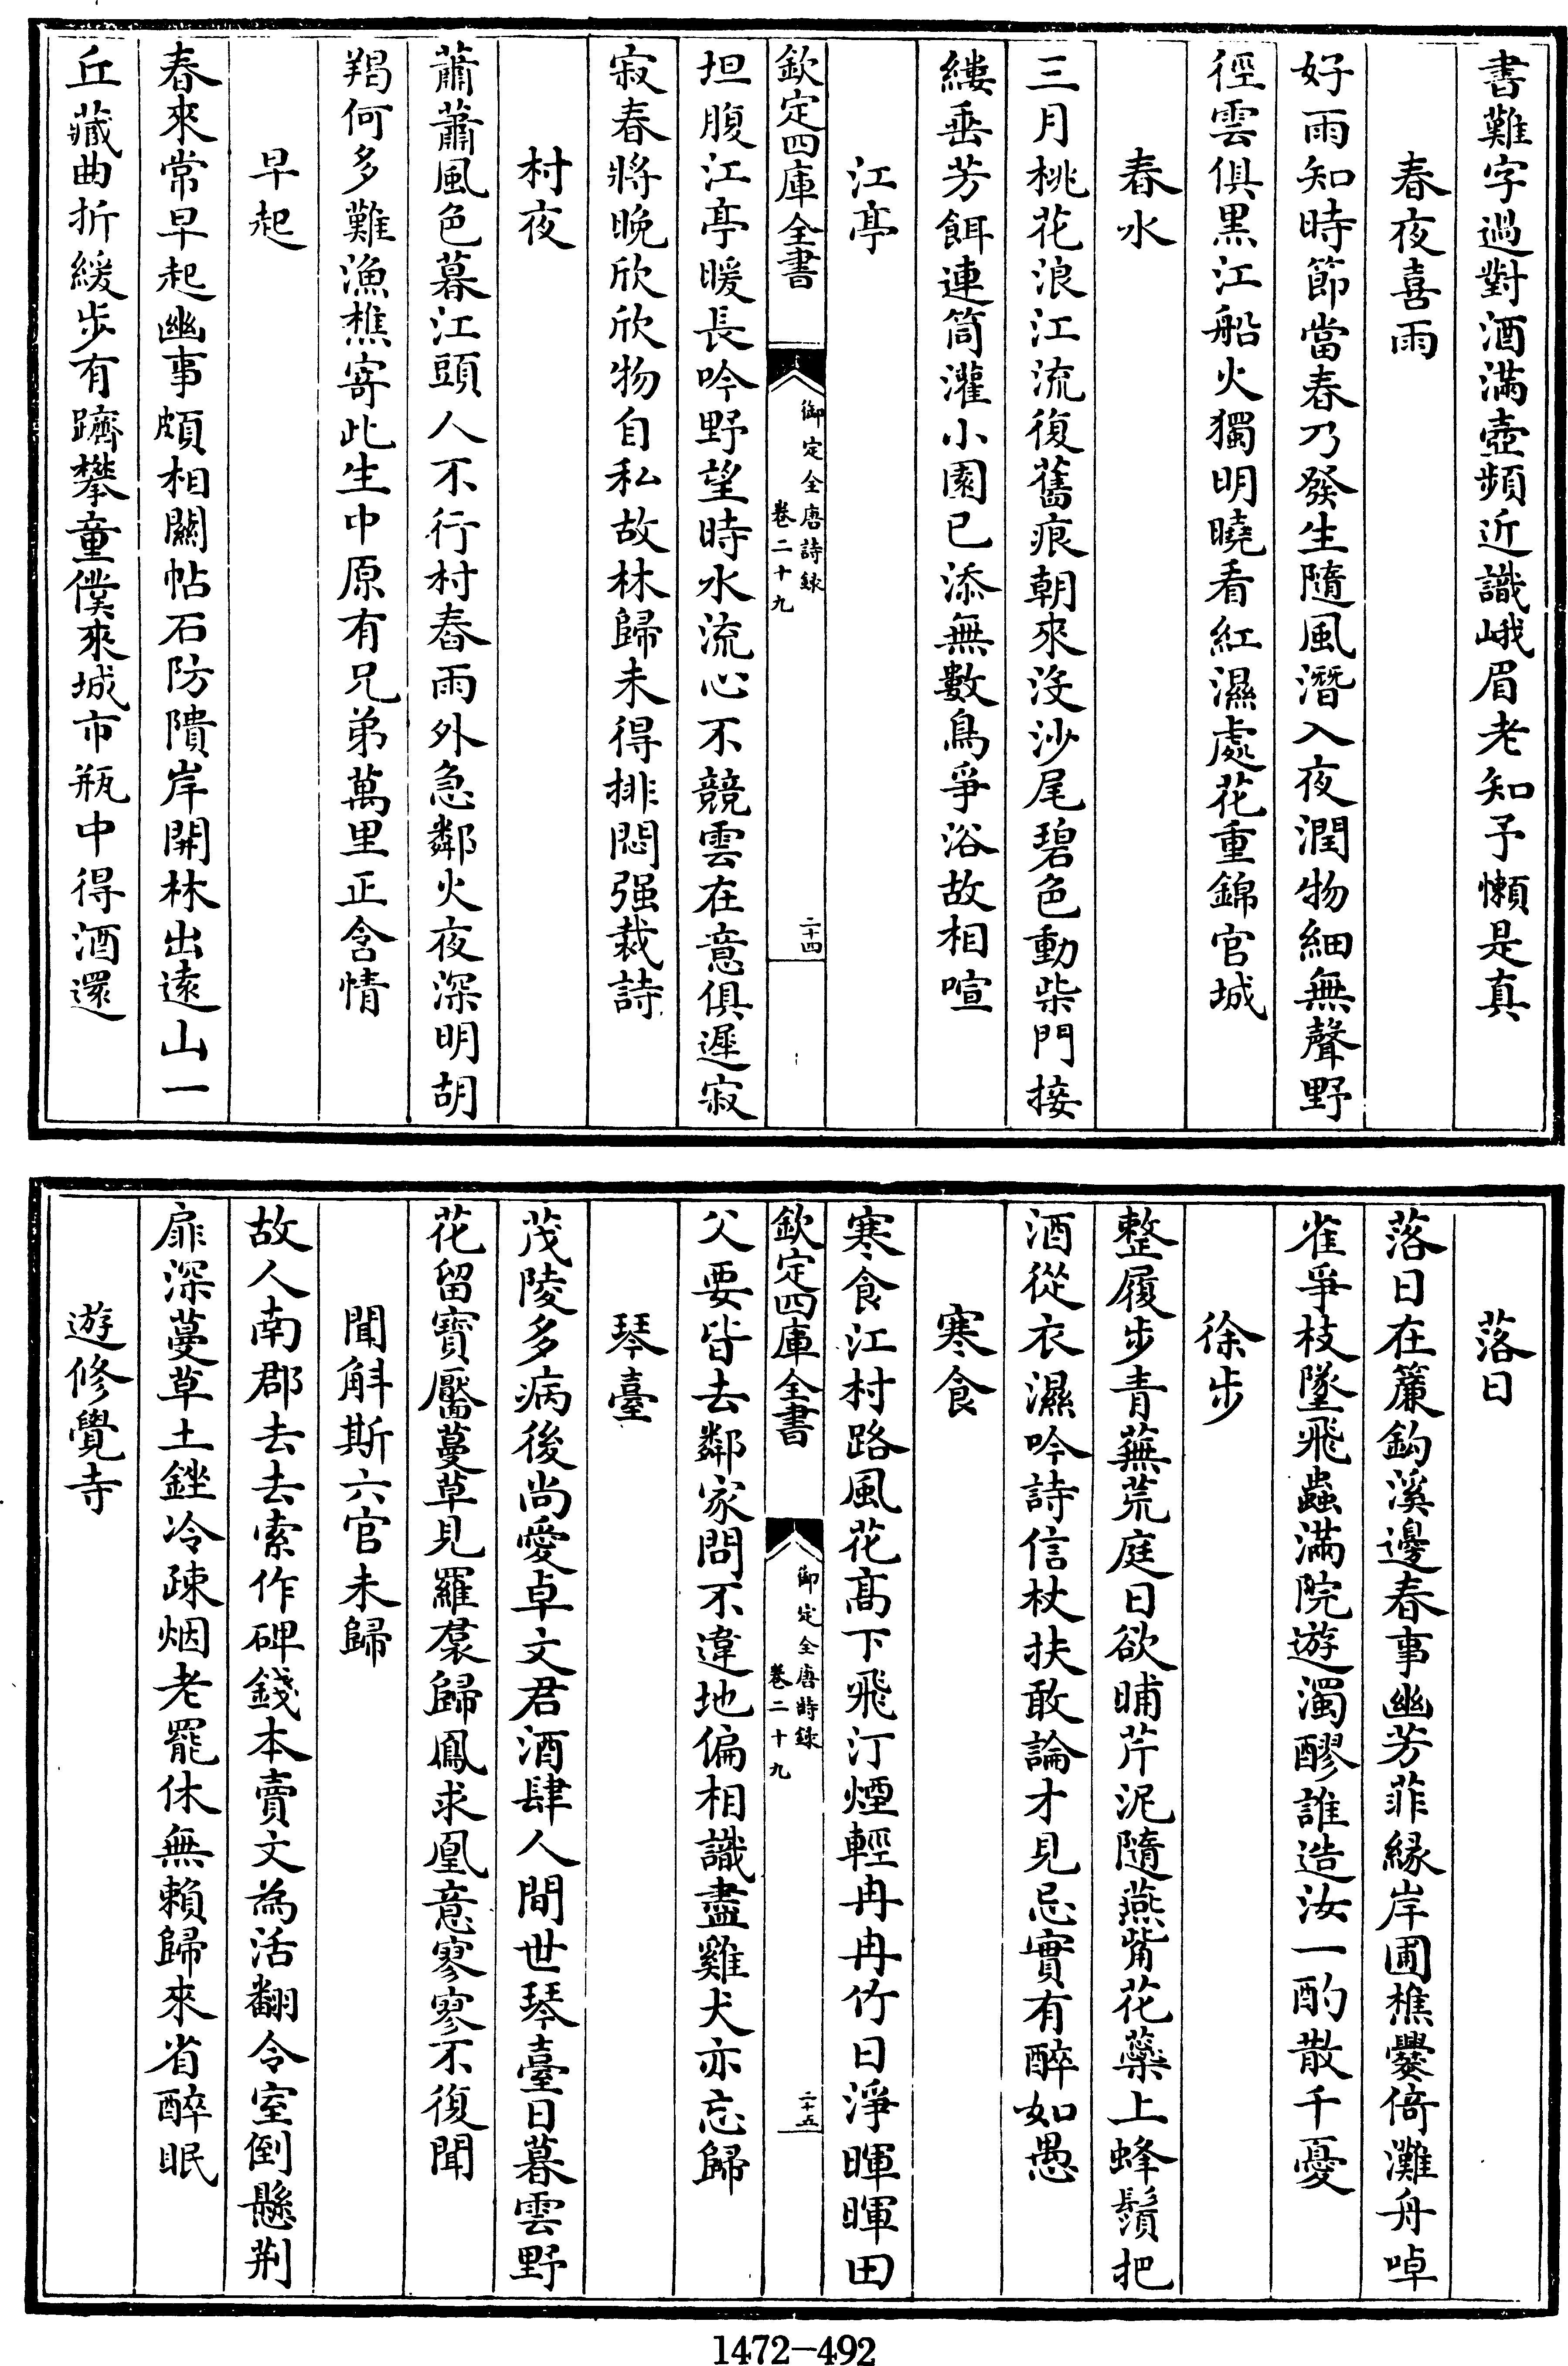 書難字過對酒滿壺頻近識峨眉老知予懶是真
春夜喜雨
好雨知時節當春乃發生隨風潛入夜潤物細無聲野
徑雲俱黑江船火獨明曉看紅濕處花重錦官城
春水
三月桃花浪江流復舊痕朝來沒沙尾碧色動柴門接
縷垂芳餌連筒灌小園已添無數鳥爭浴故相喧
江亭
欽定四庫全書
御定全唐詩錄
卷二十九
二十四
坦腹江亭暖長吟野望時水流心不競雲在意俱遲寂
寂春將晚欣欣物自私故林歸未得排悶强裁詩
村夜
蕭蕭風色暮江頭人不行村舂雨外急鄰火夜深明胡
羯何多難漁樵寄此生中原有兄弟萬里正含情
早起
春來常早起幽事頗相關帖石防隤岸開林出遠山一
丘藏曲折緩步有躋攀童僕來城市瓶中得酒還
落日
落日在簾鈎溪邊春事幽芳菲緣岸圃樵爨倚灘舟啅
雀爭枝墜飛蟲滿院遊濁醪誰造汝一酌散千憂
徐步
整履步青蕪荒庭日欲晡芹泥隨燕觜花蘂上蜂鬚把
酒從衣濕吟詩信杖扶敢論才見忌實有醉如愚
寒食
寒食江村路風花高下飛汀煙輕冉冉竹日淨暉暉田
欽定四庫全書
御定全唐詩錄
卷二十九
二十五
父要皆去鄰家問不違地偏相識盡雞犬亦忘歸
琴臺
茂陵多病後尚愛卓文君酒肆人間世琴臺日暮雲野
花留寶靨蔓草見羅裠歸鳳求凰意寥寥不復聞
聞斛斯六官未歸
故人南郡去去索作碑錢本賣文為活翻令室倒懸荆
扉深蔓草土銼冷疎烟老罷休無賴歸來省醉眠
遊修覺寺
1472-492